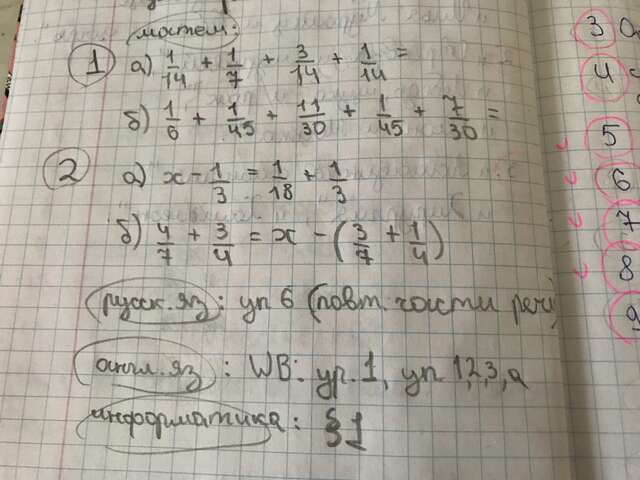 матем:
1 а) 1/14 + 1/7 + 3/14 + 1/14 =
б) 1/6 + 1/45 + 11/30 + 1/45 + 7/30 =
2 а) x - 1/3 = 1/18 + 1/3
б) 4/7 + 3/4 = x - (3/7 + 1/4)
русск. яз: уп 6 (повт. части речи)
англ. яз: WB: ур. 1, уп 1,2,3, а
информатика: §1
3
4
5
6
7
8
9